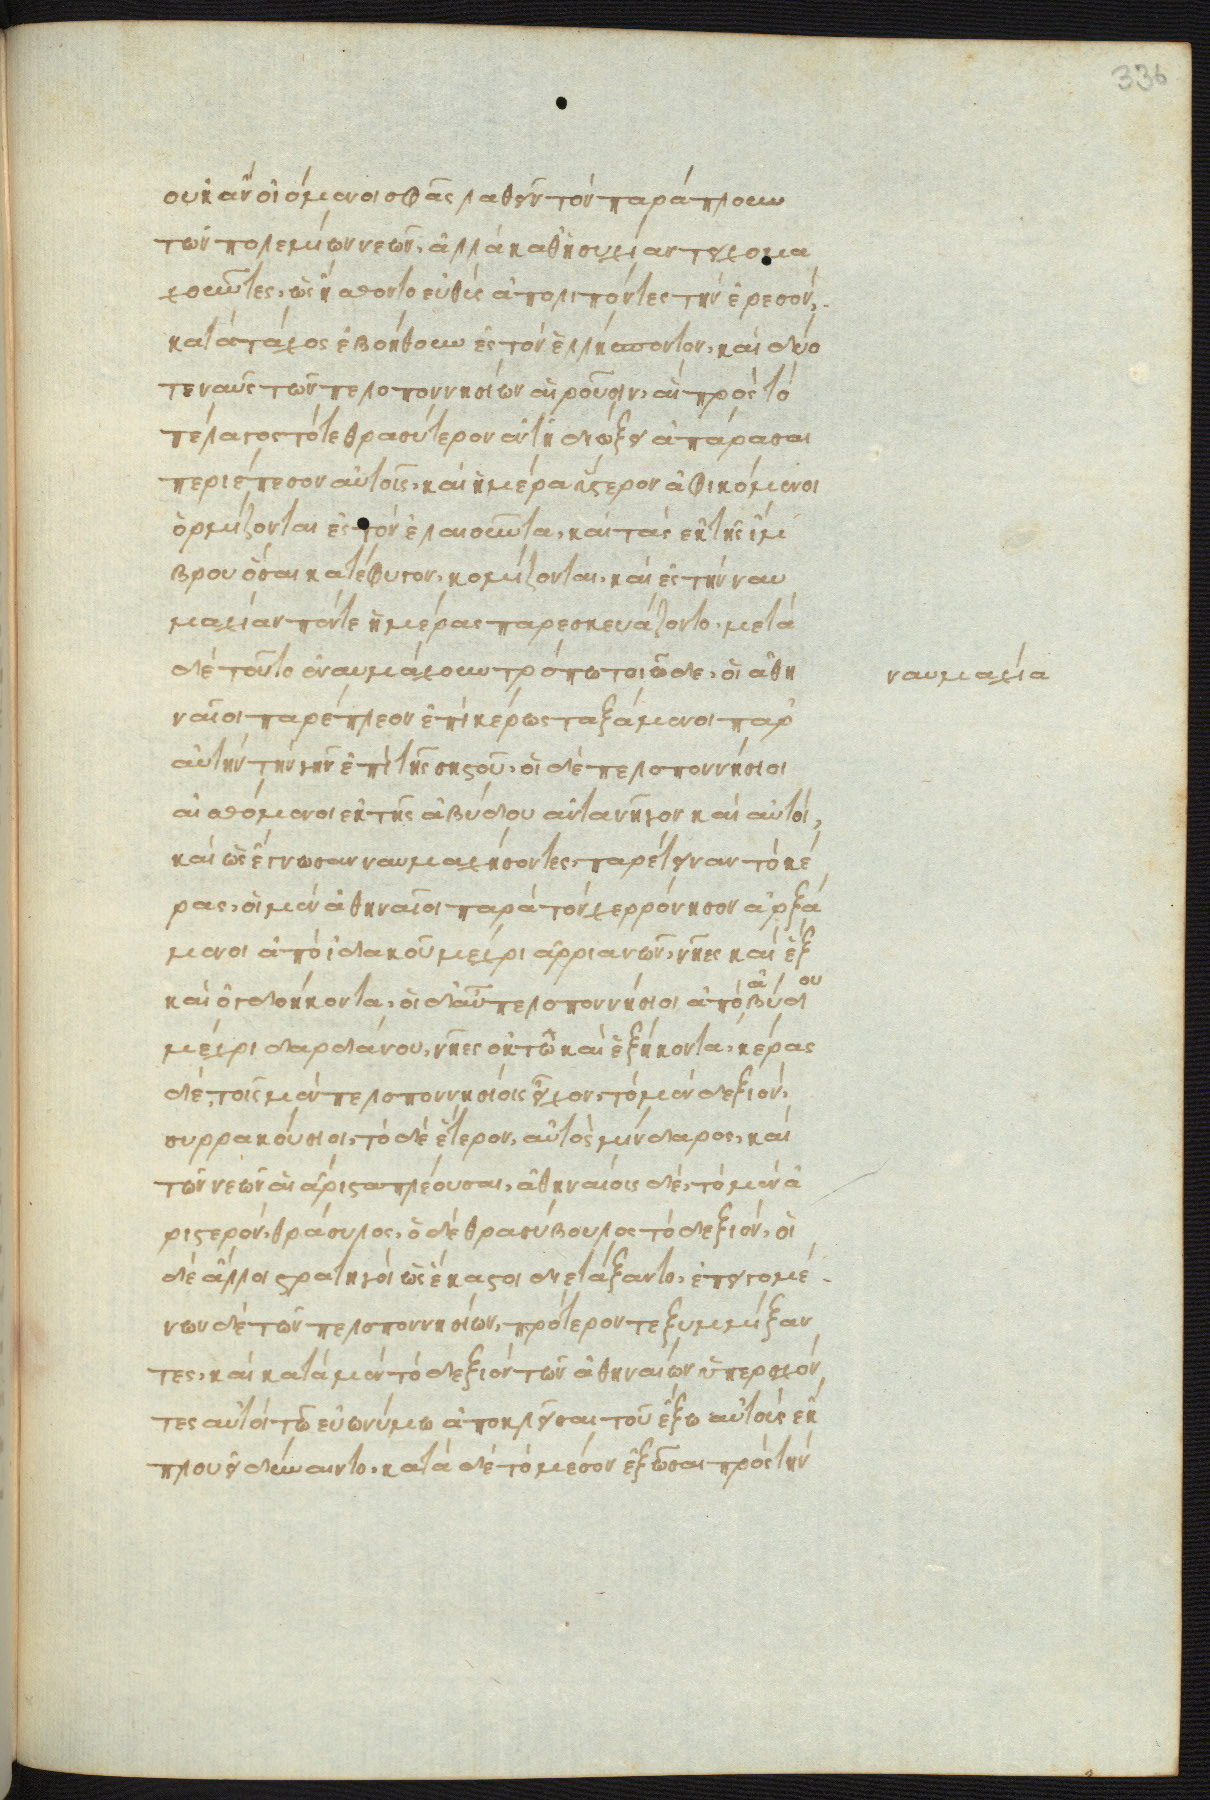 336
οὐκ ἂν οἰόμενοι σφᾶς λαθεῖν τὸν παράπλουν
τῶν πολεμίων νεῶν, ἀλλὰ καθ' ἡσυχίαν τειχομα
χοῦντες, ὡς ᾔσθοντο εὐθὺς ἀπολιπόντες τὴν ἔρεσον,
κατὰ τάχος ἐβοήθουν ἐς τὸν ἑλλήσποντον, καὶ δύο
τε ναῦς τῶν πελοποννησίων αἱροῦσιν, αἳ πρὸς τὸ
πέλαγος τότε θρασύτερον ἐν τῇ διώξει ἀπάρασαι
περιέπεσον αὐτοῖς, καὶ ἡμέρα ὕστερον ἀφικόμενοι
ὁρμίζονται ἐς τὸν ἐλαιοῦντα, καὶ τὰς ἐκ τῆς ἴμ
βρου ὅσαι κατέφυγον, κομίζονται, καὶ ἐς τὴν ναυ
μαχίαν πέντε ἡμέρας παρεσκευάζοντο, μετὰ
δὲ τοῦτο ἐναυμάχουν τρόπω τοιῶδε, οἱ ἀθη
ναυμαχία
ναῖοι παρέπλεον ἐπὶ κέρως ταξάμενοι παρ'
αὐτὴν τὴν γῆν ἐπὶ τῆς σηστοῦ, οἱ δὲ πελοποννήσιοι
αἰσθόμενοι ἐκ τῆς ἀβύδου ἀντανῆγον καὶ αὐτοί,
καὶ ὡς ἔγνωσαν ναυμαχήσοντες, παρέτειναν τὸ κέ
ρας, οἱ μὲν ἀθηναῖοι παρὰ τὸν χερρόνησον ἀρξά
μενοι ἀπὸ ἰδακοῦ μέχρι ἀρριανῶν, νῆες καὶ ἓξ
καὶ ὀγδοήκοντα, οἱ δ' αὖ πελοποννήσιοι ἀπὸ ἀβύδου
μέχρι δαρδάνου, νῆες ὀκτὼ καὶ ἑξήκοντα, κέρας
δὲ, τοῖς μὲν πελοποννησίοις εἶχον, τὸ μὲν δεξιόν,
συρρακούσιοι, τὸ δὲ ἕτερον, αὐτὸς μίνδαρος, καὶ
τῶν νεῶν αἱ ἄριστα πλέουσαι, ἀθηναίοις δὲ, τὸ μὲν ἀ
ριστερόν, θράσυλος, ὁ δὲ θρασύβουλος τὸ δεξιόν, οἱ
δὲ ἄλλοι στρατηγοὶ ὡς ἕκαστοι διετάξαντο, ἐπειγομέ
νων δὲ τῶν πελοποννησίων, πρότερόν τε ξυμμίξαν
τες, καὶ κατὰ μὲν τὸ δεξιὸν τῶν ἀθηναίων ὑπερσχόν
τες αὐτοὶ τῶ εὐωνύμω ἀποκλεῖσαι τοῦ ἔξω αὐτοὺς ἔκ
πλου εἰ δύναιντο, κατὰ δὲ τὸ μέσον ἐξῶσαι πρὸς τὴν